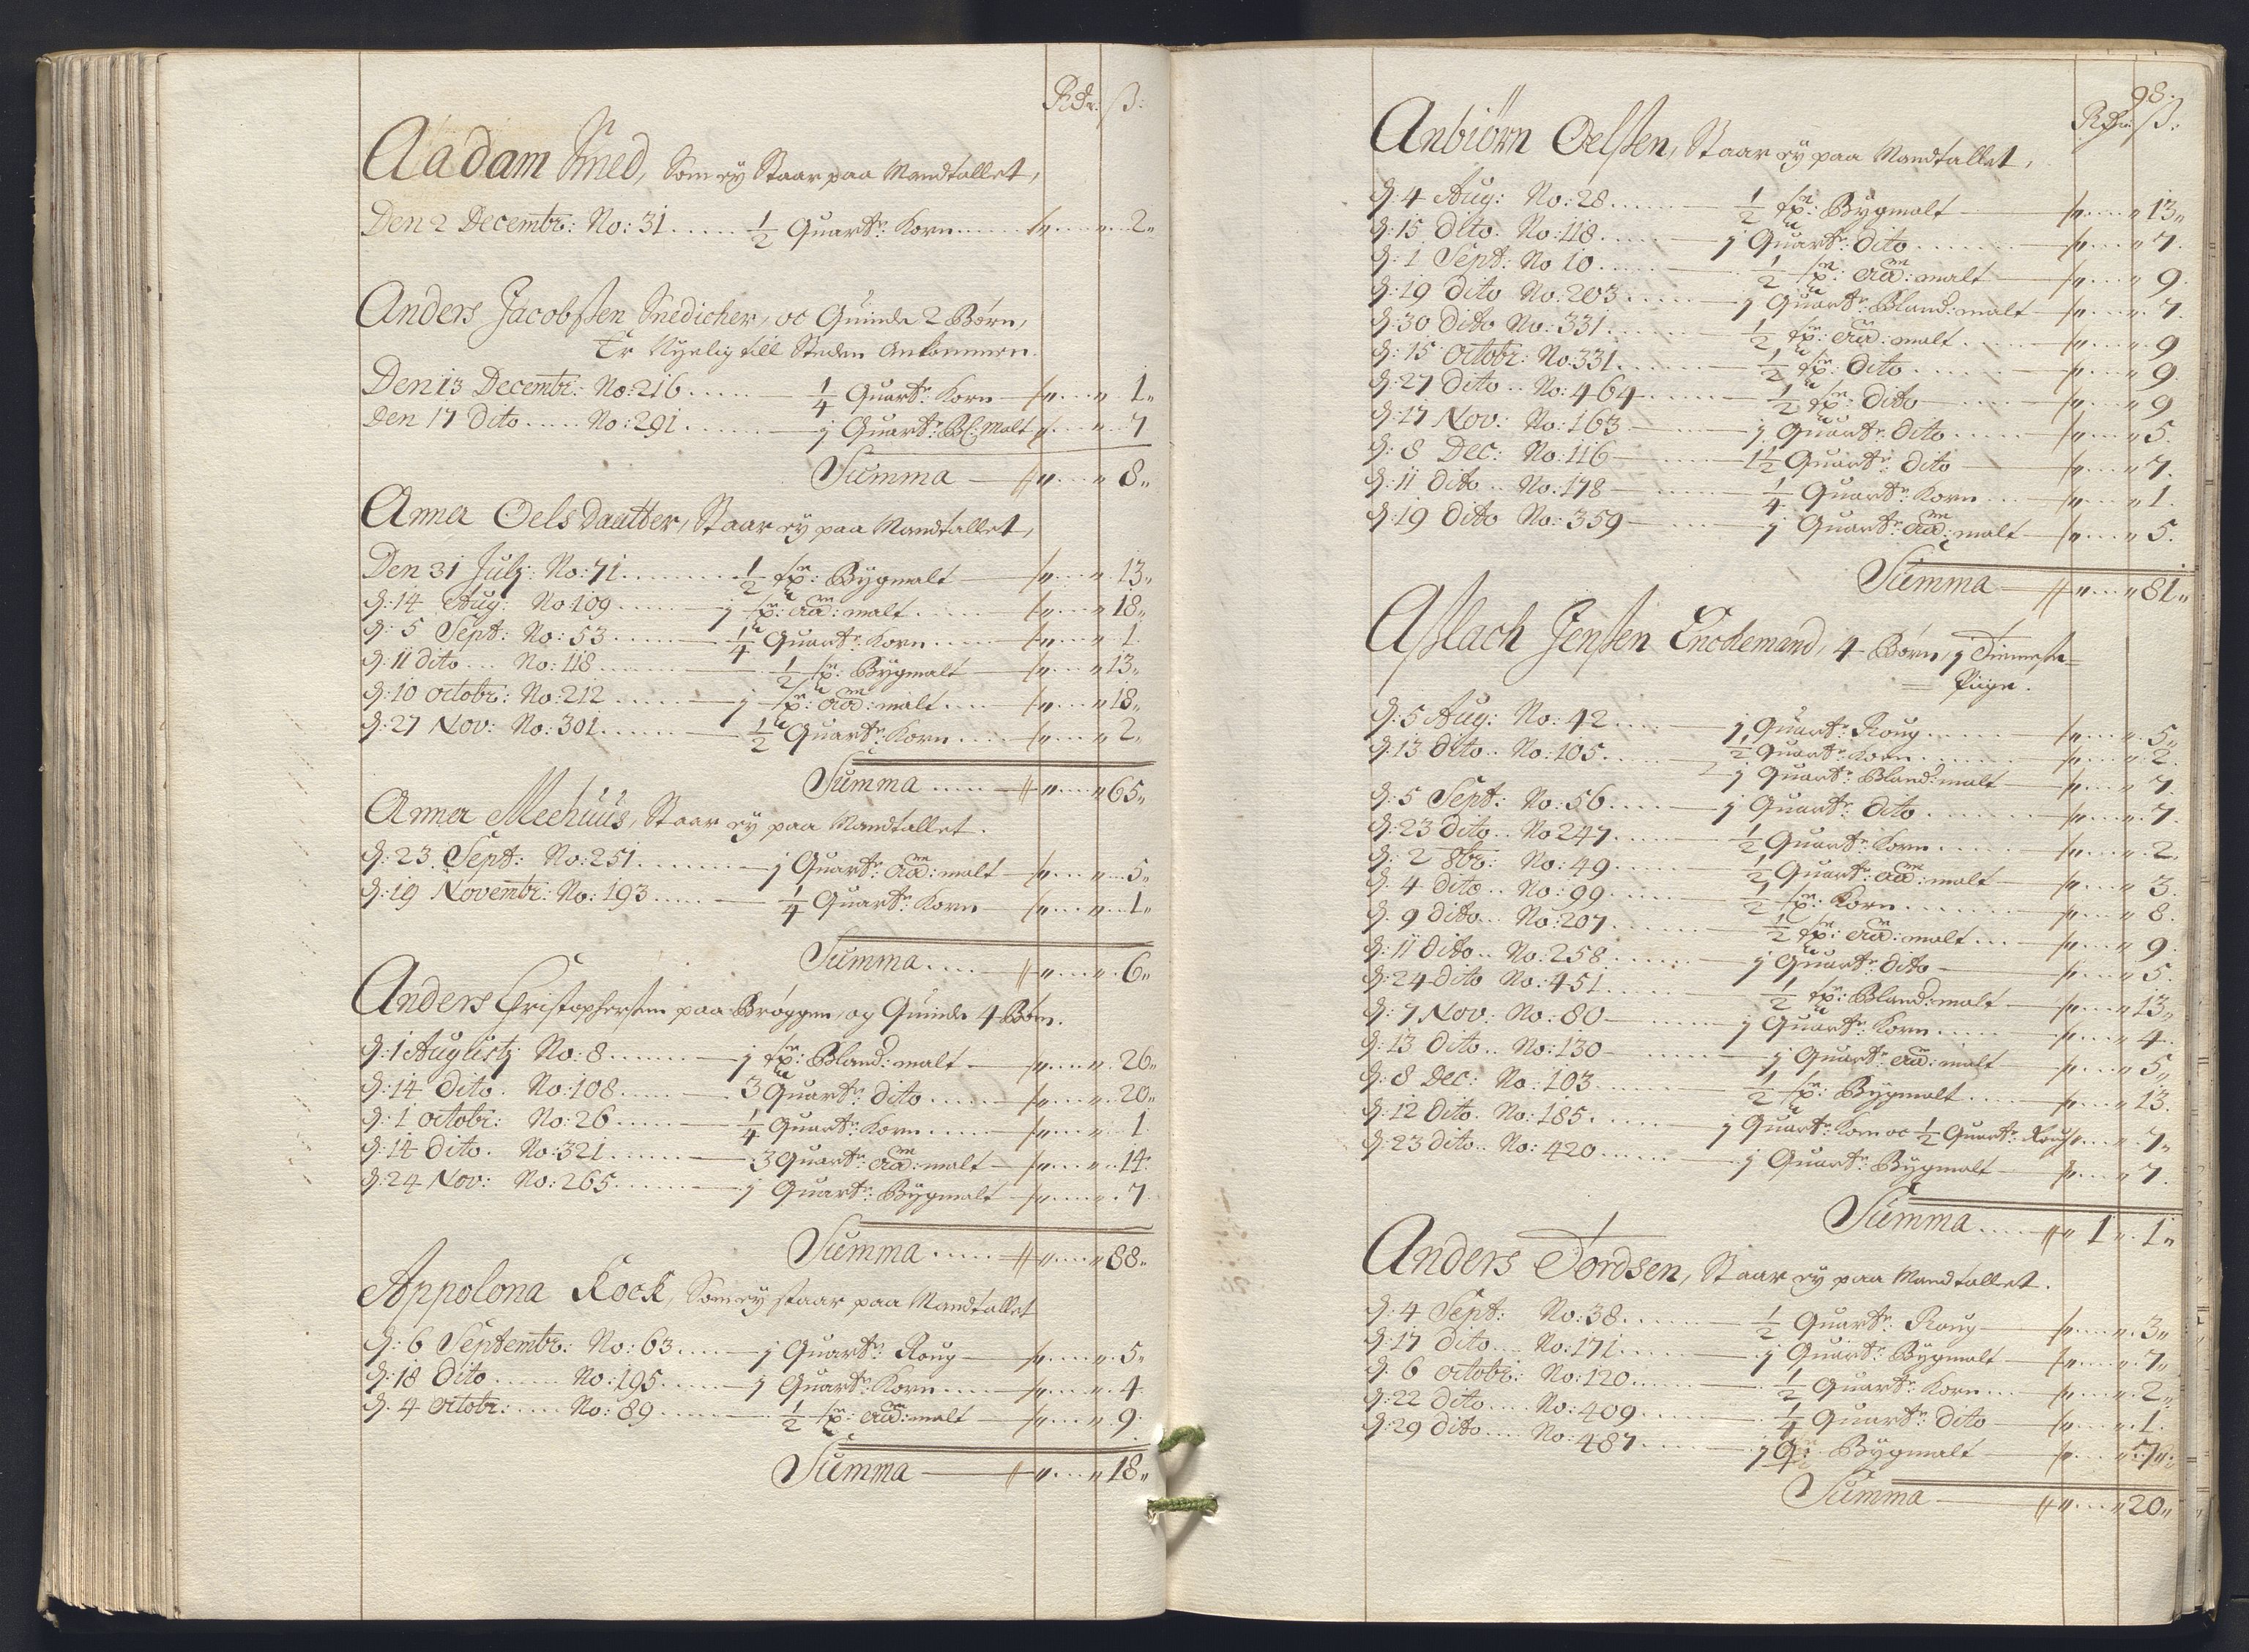 Rdr: ß:
Aadam Smed, Som ey Staar paa Mandtallet,
Den 2 Decembr: No: 31 ..... ½ Quartr: Korn ..... " .... " 2 "
Anders Jacobßen Snedicher, oc Quinde 2 Børn,
Er Nyelig till Steden Ankommen.
Den 13 Decembr: No: 216 ..... ¼ Quartr: Korn — " .... " 1 "
Den 17 Dito ..... No: 291 ..... j Quartr: Bl: Malt " .... " 7
Summa — " .... " 8 "
Anna Oelsdaatter, Staar ey paa Mandtallet,
Den 31 July: No: 71 ..... ½ tp: Bygmalt — " .... " 13 "
d: 14 Aug: No: 109 ..... j tp: aad: malt ..... " .... " 18 "
d: 5 Sept: No: 53 ..... ¼ Quartr: Korn ..... " .... " 1
d: 11 dito ... No: 118 ..... ½ tp: Bygmalt — " .... " 13 "
d: 10 octobr: No: 212 ..... j tp: aad: malt .... " .... " 18 "
d: 27 Nov: No: 301 ..... ½ Quartr: Korn .... " .... " 2 "
Summa ..... " .... " 65 "
Anna Meehuus, Staar ey paa Mandtallet.
d: 23 Sept: No: 251 ..... j Quartr: aad: malt — " .... " 5 "
d: 19 Novembr: No: 193 ..... ¼ Quartr: Korn — " .... " 1 "
Summa ..... " .... " 6 "
Anders Christophersen paa Bryggen, og Quinde 4 Børn.
d: 1 Augustj No: 8 ..... j tp: Bland: malt — " .... " 26 "
d: 14 dito. No: 108 ..... 3 Quartr: dito ..... " .... " 20 "
d: 1 octobr: No: 26 ..... ¼ Quartr: Korn ..... " .... " 1
d: 14 dito. No: 321 ..... 3 Quartr: aad: malt — " .... " 14
d: 24 Nov: No: 265 ..... j Quartr: Bygmalt — " .... " 7
Summa ..... " .... " 88 "
Appolona Kock, Som ey staar paa Mandtallet
d: 6 Septembr: No: 63 .... j Quartr: Roug — " .... " 5 "
d: 18 dito ..... No: 195 ..... j Quartr: Korn ..... " .... " 4
d. 4 octobr: .... No: 89 ..... ½ tp: aad: malt — " .... " 9
Summa — " .... " 18 "
98.
Rdr: ß:
Anbiørn Oelßen, Staar ey paa Mandtallet,
d: 4 Aug: No: 28 ..... ½ tp: Bygmalt — " .... " 13 "
d: 15 dito. No: 118 ..... j Quartr: dito ..... " .... " 7
d: 1 Sept: No 10 ..... ½ tp: aad: malt — " .... " 9
d: 19 dito No: 203 ..... j Quartr: Bland: malt — " .... " 7
d: 30 dito No: 331 ..... ½ tp: aad: malt ..... " .... " 9
d: 15 octobr: No. 331 ..... ½ tp: dito ..... " .... " 9
d: 27 dito .. No: 464 ..... ½ tp: dito — " .... " 9
d: 17 Nov: No: 163 — j Quartr: dito ..... " .... " 5
d: 8 Dec: No: 116 — 1½ Quartr: dito — " .... " 7
d: 11 dito .. No: 178 — ¼ Quartr: Korn ... " .... " 1.
d: 19 dito No: 359 — j Quartr: aad: malt — " .... " 5.
Summa — " .... " 81 "
Aßlach Jenßen Enckemand, 4 Børn, j Tienneste
Piige.
d: 5 Aug: No: 42 .... j Quartr: Roug ..... " .... " 5 "
d: 13 dito .. No: 105 .... ½ Quartr: Korn ..... " .... " 2
j Quartr: Bland: malt — " .... " 7
d: 5 Sept: No: 56 .... j Quartr: dito ..... " .... " 7
d: 23 dito .. No 247 .... ½ Quartr: Korn ..... " .... " 2
d: 2 8br: No: 49 .... ½ Quartr: aad: malt — " .... " 3
d. 4 dito .. No: 99 .... ½ tp: Korn ..... " .... " 8
d. 9 dito ... No: 207 ..... ½ tp: aad: malt ... " .... " 9
d: 11 dito .. No: 258 ..... j Quartr: dito — " .... " 5
d: 24 dito No: 451 ..... ½ tp: Bland: malt — " .... " 13 "
d: 7 Nov: No: 80 — j Quartr: Korn ..... " .... " 4
d: 13 dito .. No: 130 — j Quartr: aad: malt — " .... " 5 "
d: 8 Dec: No: 103 ..... ½ tp: Bygmalt .... " .... " 13.
d: 12 dito. No: 185 ..... j Quartr: Korn oc ½ Quartr: Roug " .... " 7 "
d: 23 dito .. No: 420 ..... j Quartr: Bygmalt — " .... " 7.
Summa ..... " 1 " 1 "
Anders Tordsen, Staar ey paa Mandtallet.
d: 4 Sept: No: 38 ..... ½ Quartr: Roug — " .... " 3 "
d: 17 dito ... No: 171 ..... j Quartr: Bygmalt — " .... " 7 "
d. 6 octobr: No: 120 ..... ½ Quartr: Korn ... " .... " 2 "
d: 22 dito .... No: 409 ..... ¼ Quartr: dito — " .... " 1.
d: 29 dito .... No: 487 ..... j Q: Bygmalt — " .... " 7 "
Summa — " .... " 20 "